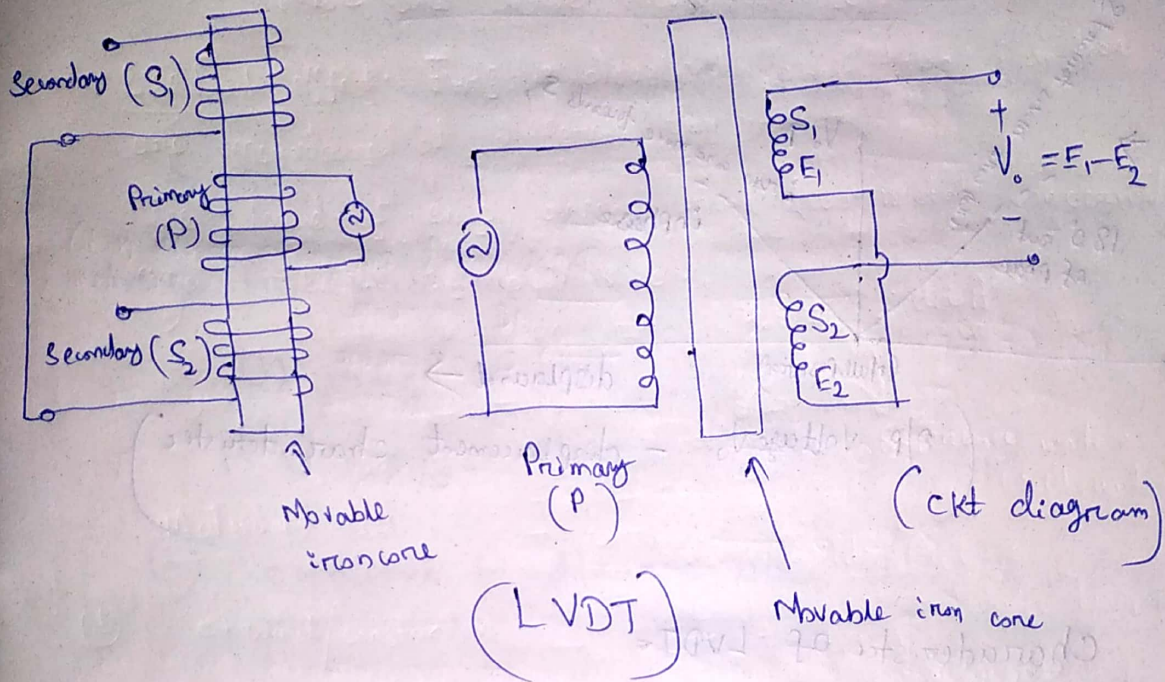 Secondary (S₁)
Primary
(P)
Secondary (S₂)
Movable
iron core
Primary
(P)
S₁
E₁
S₂
E₂
+
V₀ = E₁-E₂
-
(ckt diagram)
Movable iron core
(LVDT)